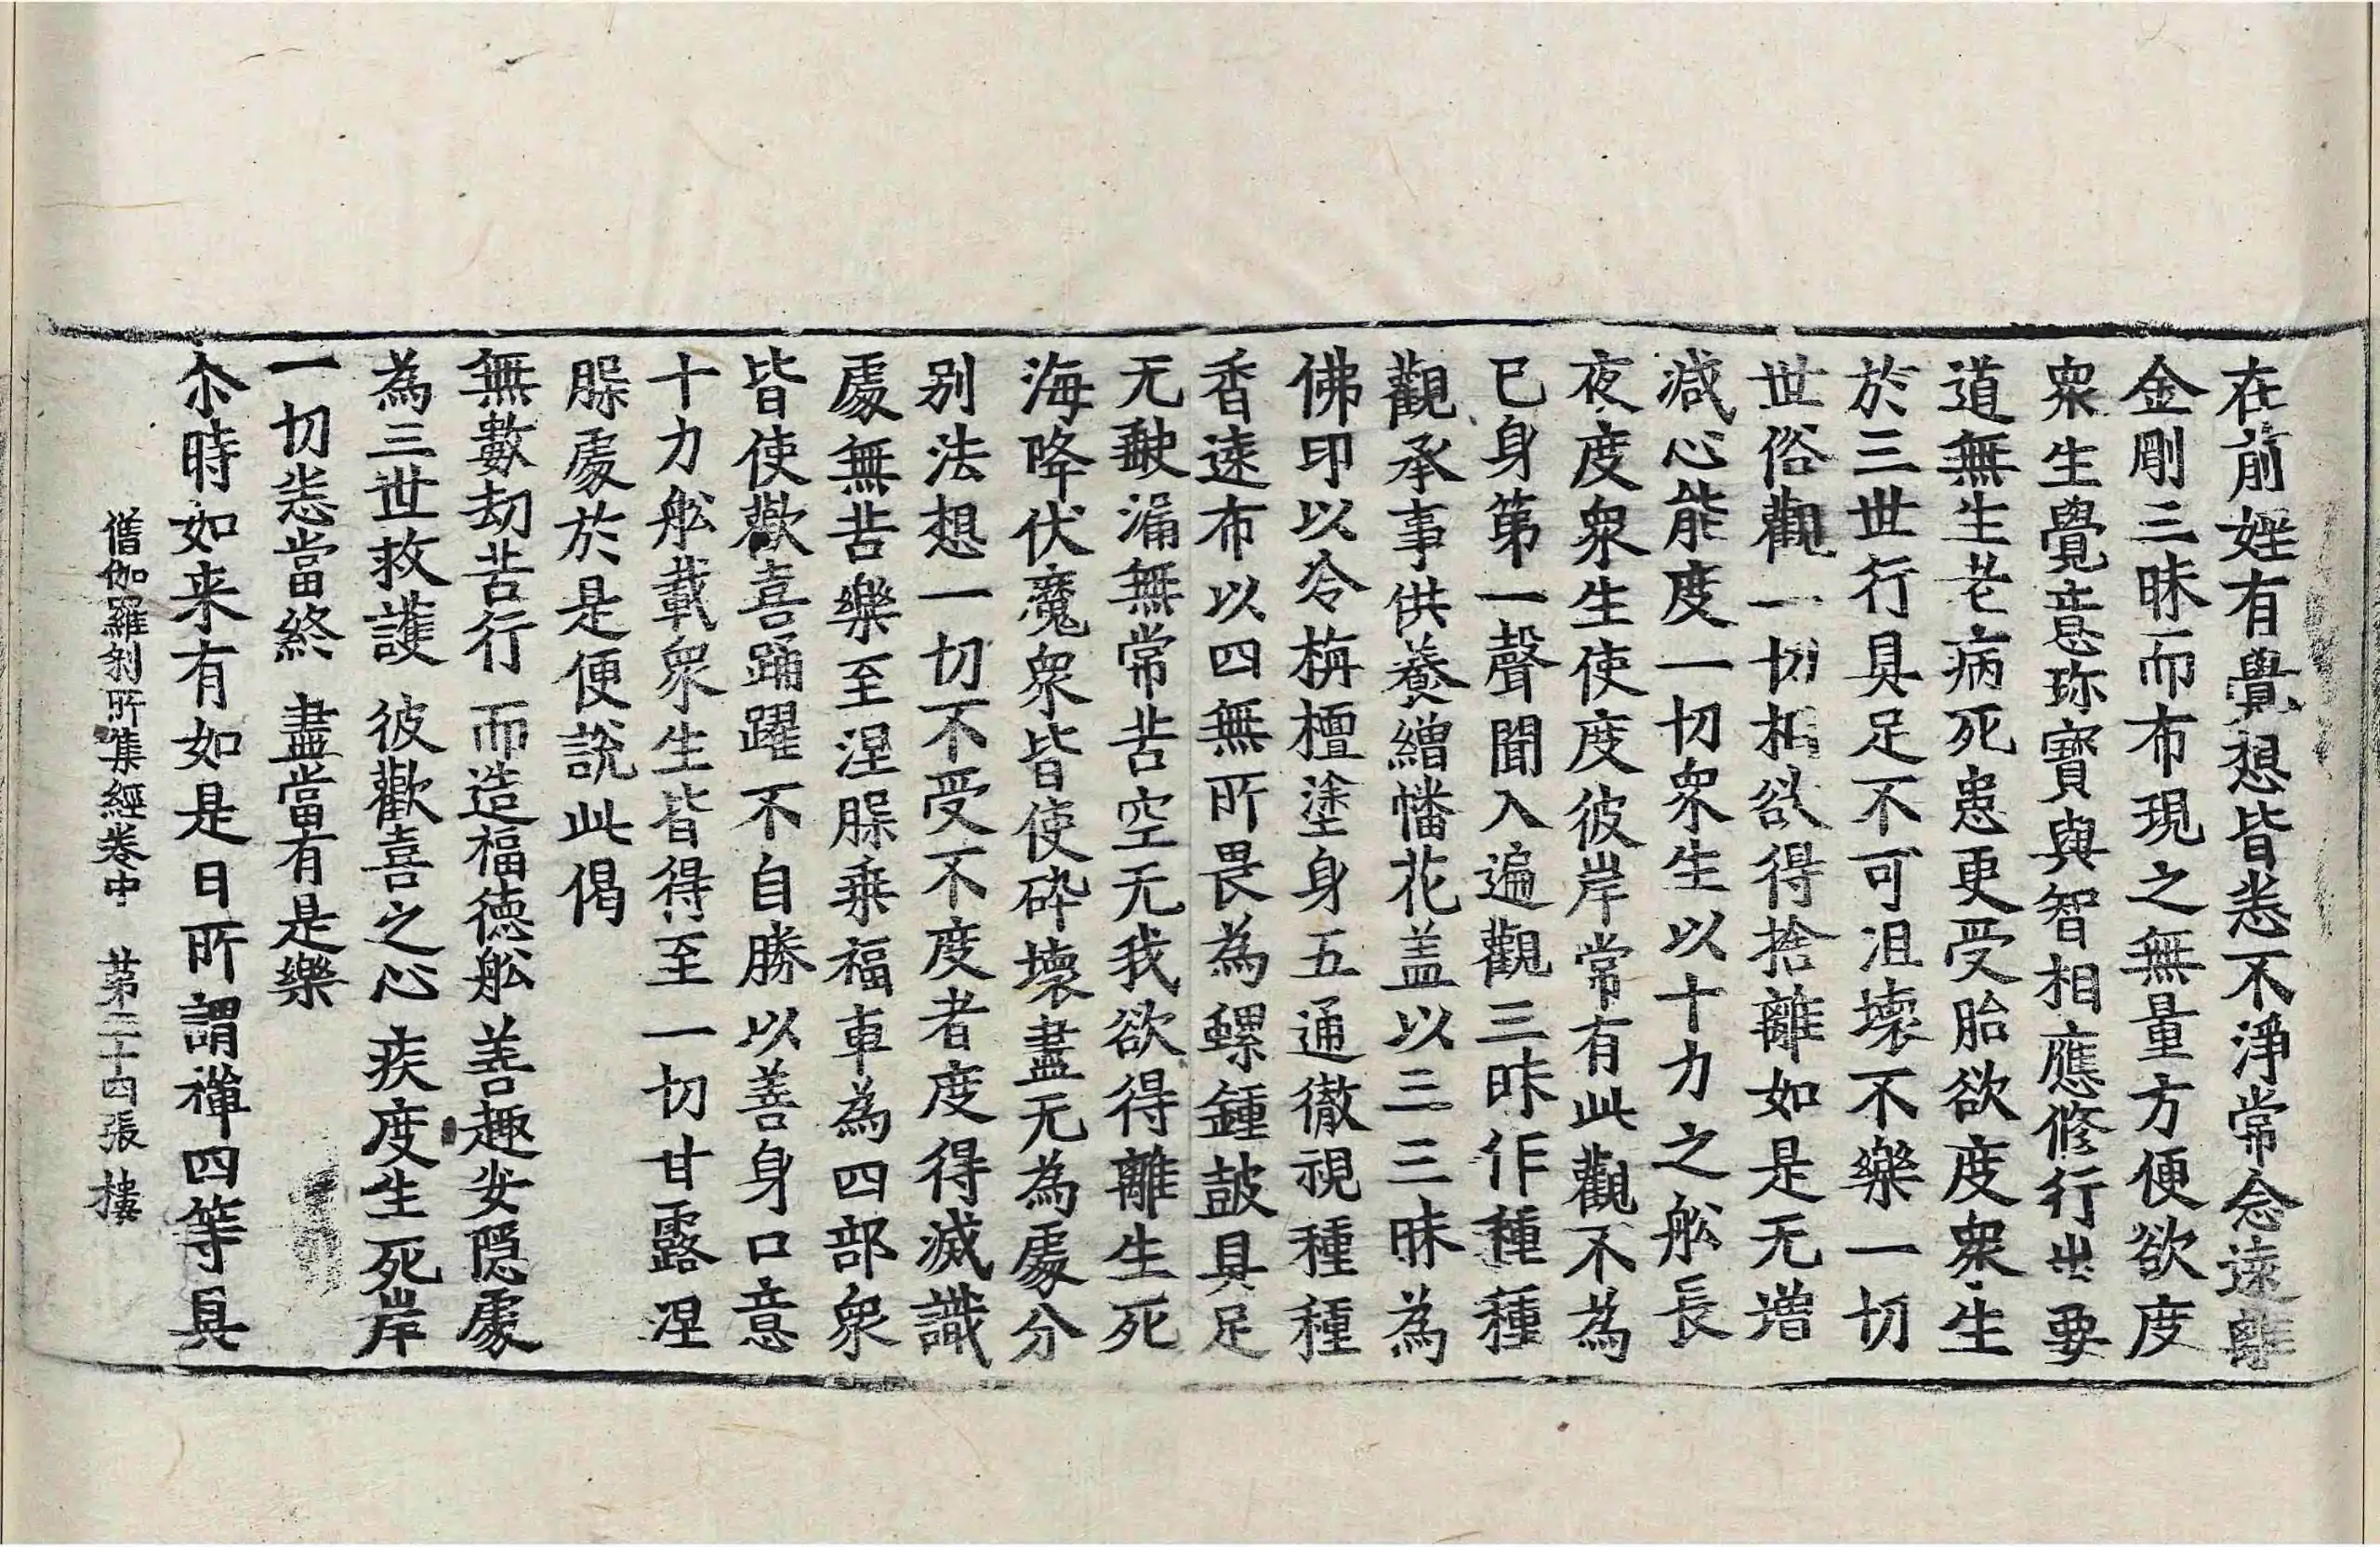 在前婬有覺想皆悉不淨常念遠離
金剛三昧而布現之無量方便欲度
衆生覺意珎寶與智相應修行出要
道無生老病死患更受胎欲度衆生
於三世行具足不可沮壞不樂一切
世俗觀一切相欲得捨離如是无增
減心能度一切衆生以十力之舩長
夜度衆生使度彼岸常有此觀不為
已身第一聲聞入遍觀三昧作種種
觀承事供養繒幡花盖以三三昧為
佛印以冷栴檀塗身五通徹視種種
香遠布以四無所畏為螺鍾鼓具足
无缺漏無常苦空无我欲得離生死
海降伏魔衆皆使碎壞盡无為處分
别法想一切不受不度者度得滅識
處無苦樂至涅槃乘福車為四部衆
皆使歡喜踊躍不自勝以善身口意
十力舩載衆生皆得至一切甘露涅
槃處於是便說此偈
無數劫苦行 而造福徳舩 善趣安隠處
為三世救護 彼歡喜之心 疾度生死岸
一切悉當終 盡當有是樂
尒時如来有如是日所謂禪四等具
僧伽羅刹所集經卷中 第二十四張 樓